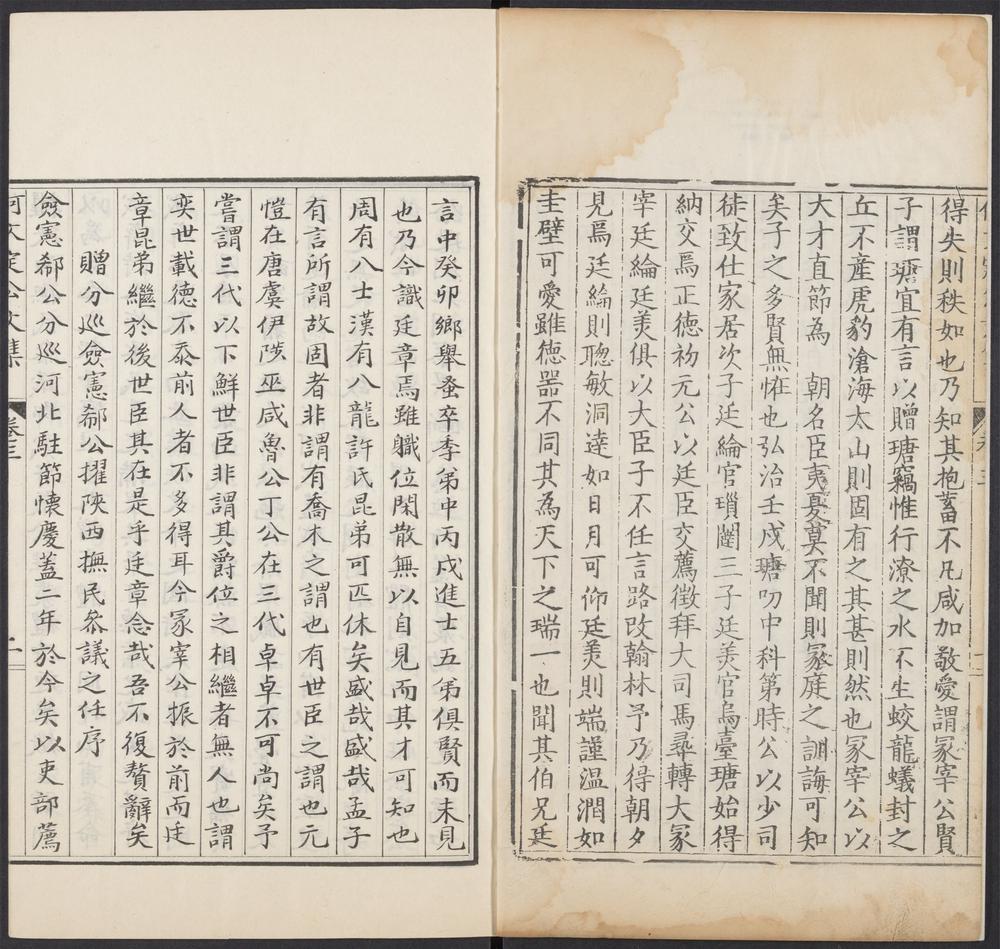 得失則秩如也乃知其抱蓄不凡咸加敬愛謂冡宰公賢
子謂瑭宜有言以贈瑭竊惟行潦之水不生蛟龍蟻封之
丘不產虎豹滄海太山則固有之其甚則然也冢宰公以
大才直節為　朝名臣夷憂寞不聞則冡庭之訓誨可知
矣子之多賢無恠也弘治壬戍瑭叨中科第時公以少司
徒致仕家居次子廷綸官瑣闥三子廷羙官烏臺瑭始得
納交焉正徳初元公以廷臣交薦徴拜大司馬尋轉大冢
宰廷綸廷羙俱以大臣子不任言路改翰林予乃得朝夕
見焉廷綸則聦敏洞達如日月可仰廷羙則端謹温潤如
圭璧可愛雖徳器不同其為天下之瑞一也聞其伯兄廷
言中癸卯鄉舉蚤卒季第中丙戍進士五弟俱賢而未見
也乃今識廷章焉雖職位閑散無以自見而其才可知也
周有八士漢有八龍許氏昆弟可匹休矣盛哉盛哉孟子
有言所謂故固者非謂有喬木之謂也有世臣之謂也元
愷在唐虞伊陟巫咸魯公丁公在三代卓卓不可尚矣予
嘗謂三代以下鮮世臣非謂其爵位之相繼者無人也謂
奕世載徳不忝前人者不多得耳今冡宰公振於前而廷
章昆弟繼於後世臣其在是乎廷章念哉吾不復贅辭矣
贈分巡僉憲郗公擢陝西撫民叅議之任序
僉憲郗公分巡河北駐節懷慶蓋二年於今矣以吏部薦
何文定公文集　卷三